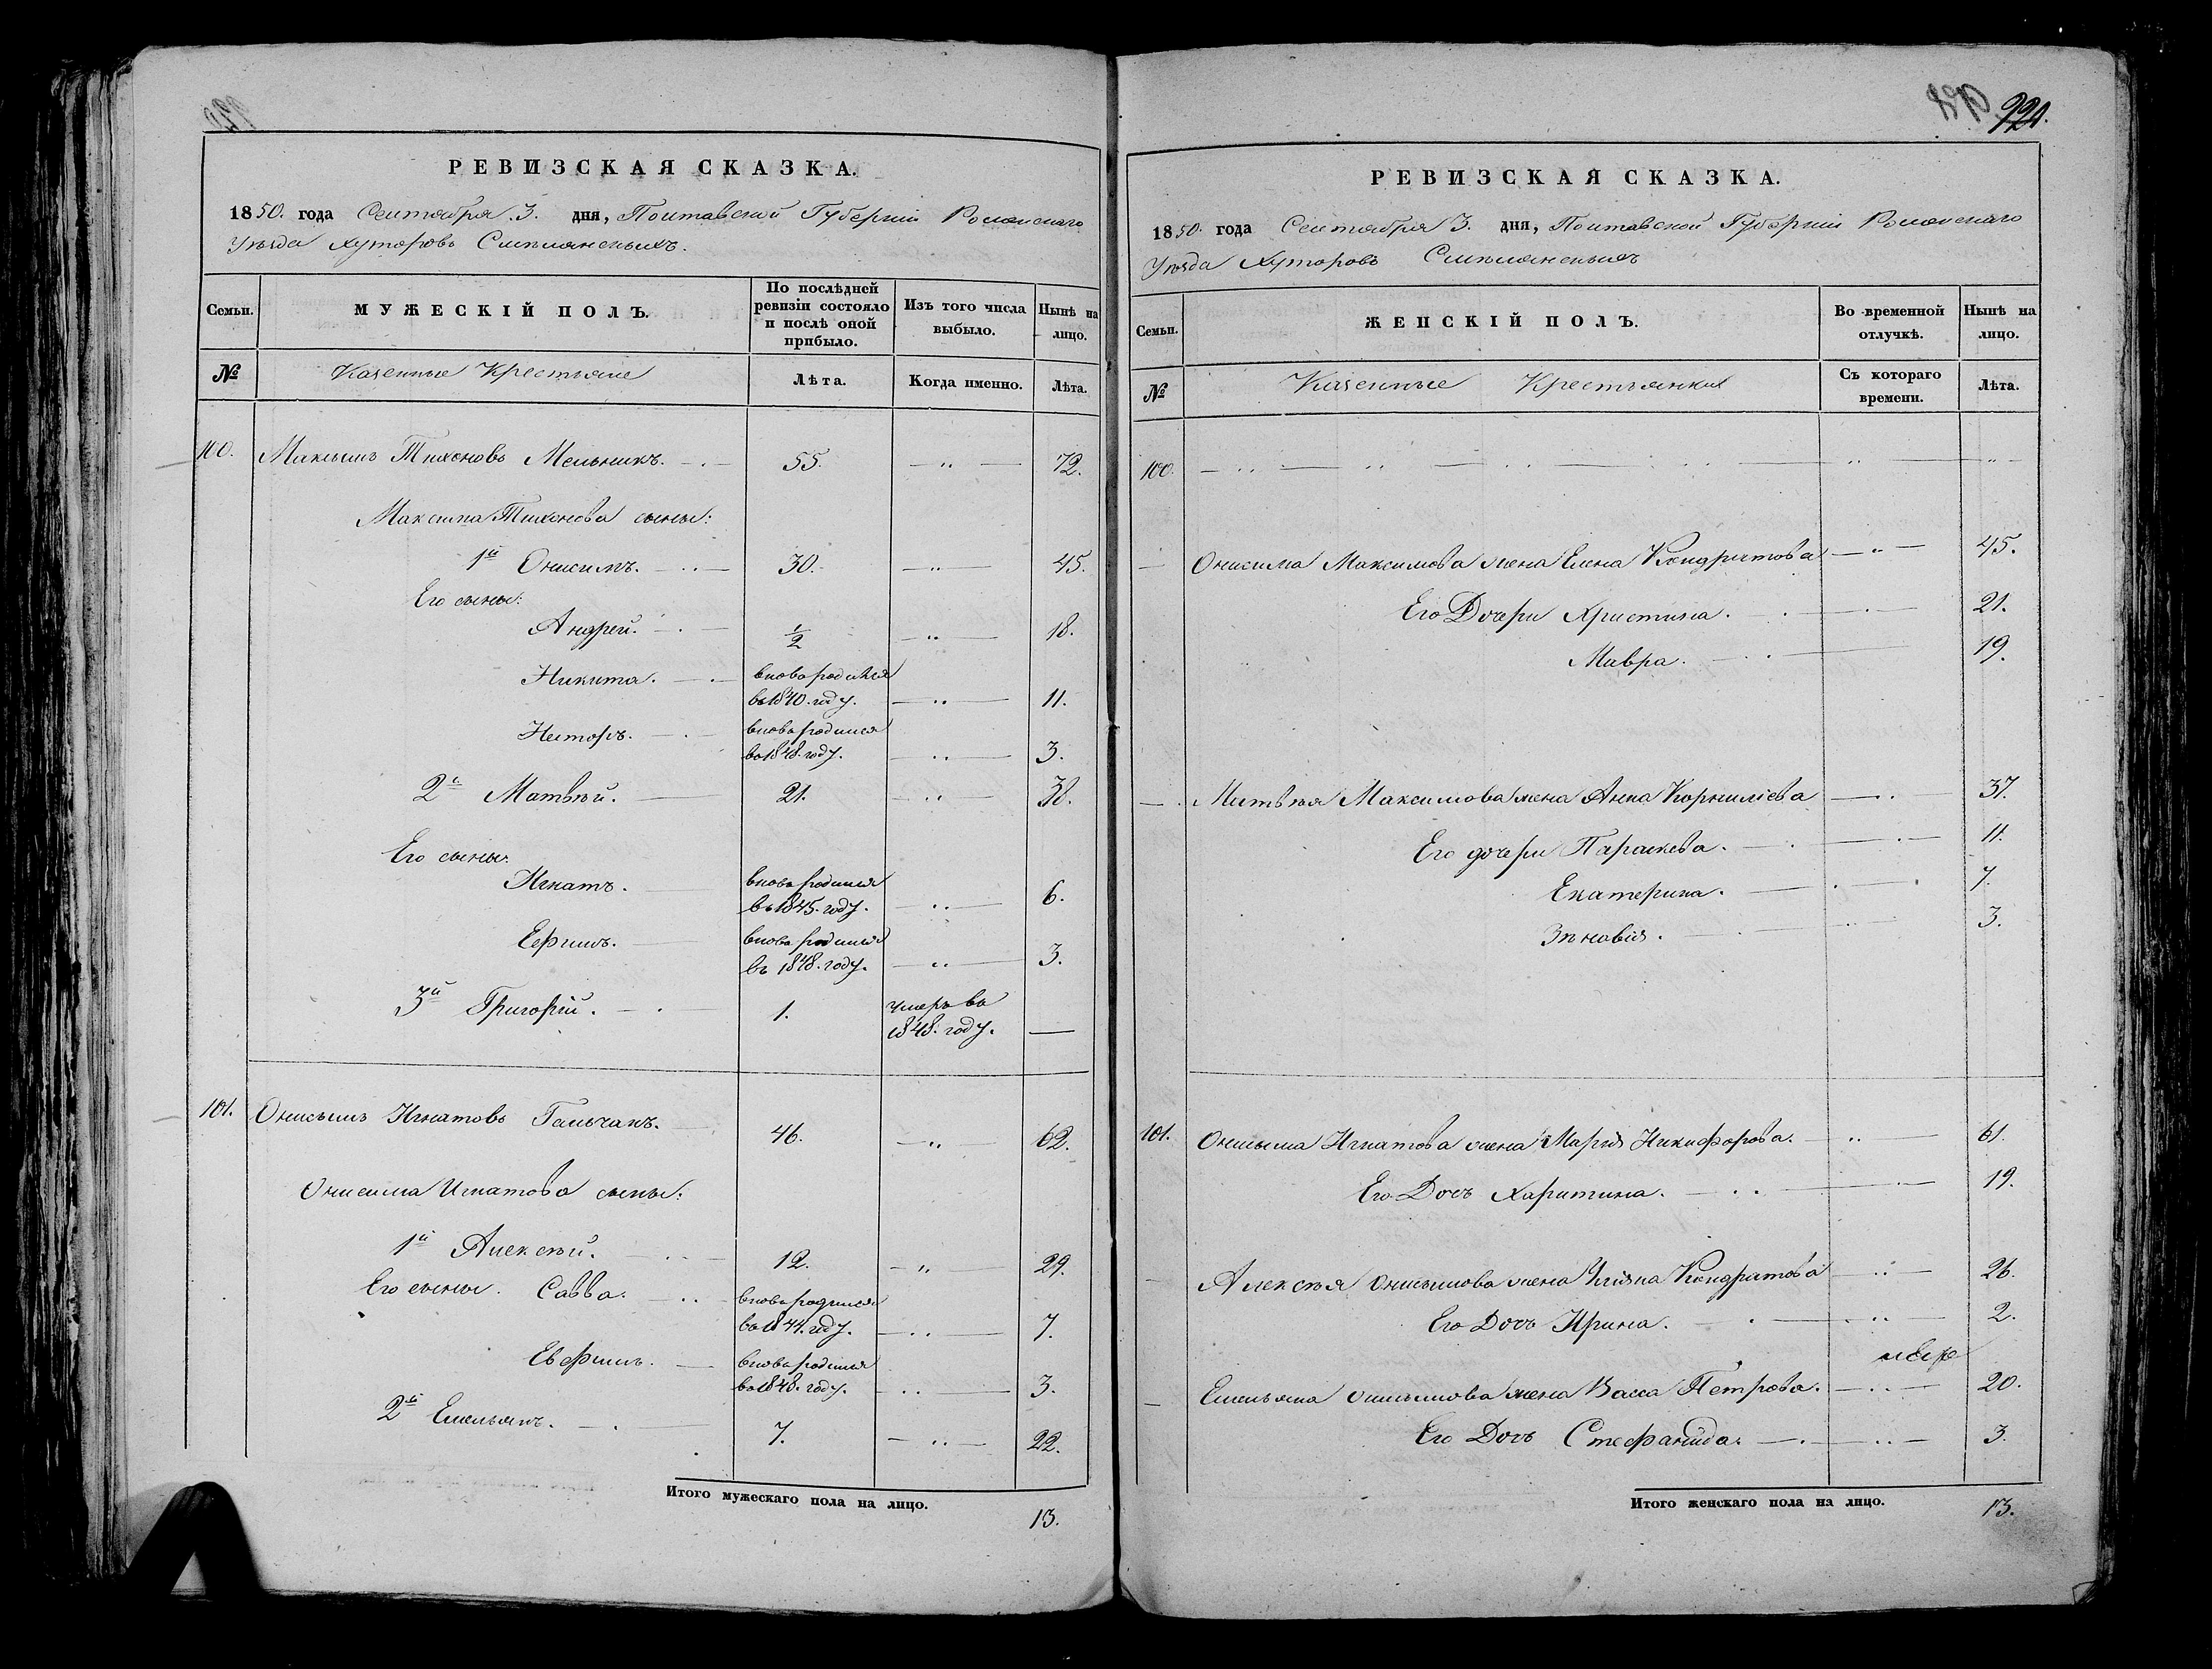 РЕВИЗСКАЯ СКАЗКА.
1850. года Сентября 3. дня, Полтавской Губерніи Роменскаго
Уѣзда Хуторовъ Смѣлянскихъ.
Семьи. МУЖЕСКІЙ ПОЛЪ. По послѣдней ревизіи состояло и послѣ оной прибыло. Изъ того числа выбыло. Нынѣ на лицо.
№ Казенные Крестьяне Лѣта. Когда именно. Лѣта.
100. Максимъ Тихоновъ Мельникъ. 55. 72.
Максима Тихонова сыны:
1й Онисимъ. 30. 45.
Его сыны:
Андрей. 1/2 18.
Никита. вновь родился
въ 1840. году. 11.
Несторъ. вновь родился
въ 1848. году. 3.
2й Матвѣй. 21. 38.
Его сыны:
Игнатъ. вновь родился
въ 1845. году. 6.
Ефимъ. вновь родился
въ 1848. году. 3.
3й Григорій. 1. умеръ въ
1848. году. —
101. Онисимъ Игнатовъ Гальчакъ. 46. 62.
Онисима Игнатова сыны:
1й Алексѣй. 12. 29.
Его сыны. Савва. вновь родился
въ 1844. году. 7.
Евфимъ. вновь родился
въ 1848. году. 3.
2й Емельянъ. 7. 22.
Итого мужескаго пола на лицо. 13.
РЕВИЗСКАЯ СКАЗКА.
1850. года Сентября 3. дня, Полтавской Губерніи Роменскаго
Уѣзда Хуторовъ Смѣлянскихъ
Семьи. ЖЕНСКІЙ ПОЛЪ. Во временной отлучкѣ. Нынѣ на лицо.
№ Казенные Крестьянки Съ котораго времени. Лѣта.
100.
Онисима Максимова жена Елена Кондратова 45.
Его Дочери Христина. 21.
Мавра. 19.
Матвѣя Максимова жена Анна Корниліева 37.
Его дочери Параскева. 11.
Екатерина. 7.
Зѣновія. 3.
101. Онисима Игнатова жена Марія Никифорова. 61.
Его Дочь Харитина. 19.
Алексѣя Онисимова жена Кондратова 26.
Его Дочь Ирина. 2.
Емельяна Онисимова жена Васса Петрова. 20.
Его Дочь Стефанида. 3.
Итого женскаго пола на лицо. 13.